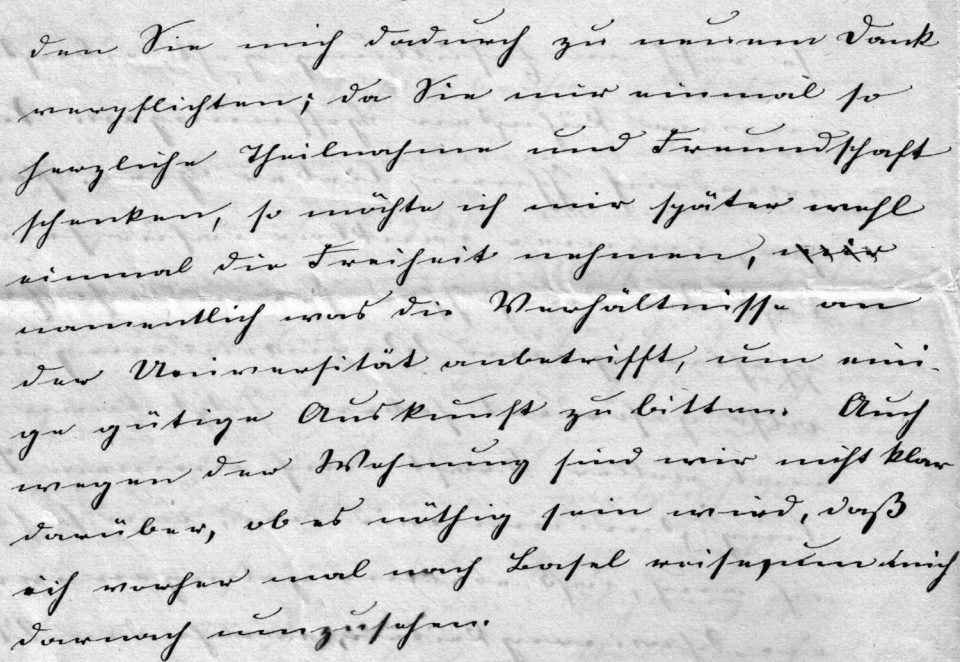 den Sie mich dadurch zu neuem Dank
verpflichten; da Sie mir einmal so
herzliche Theilnahme und Freundschaft
schenken, so möchte ich mir später wohl
einmal die Freiheit nehmen,
namentlich was die Verhältnisse an
der Universität anbetrifft, um eini-
ge gütige Auskunft zu bitten. Auch
wegen der Wohnung sind wir nicht klar
darüber, ob es nöthig sein wird, daß
ich vorher mal nach Basel reise, um mich
darnach umzusehen.